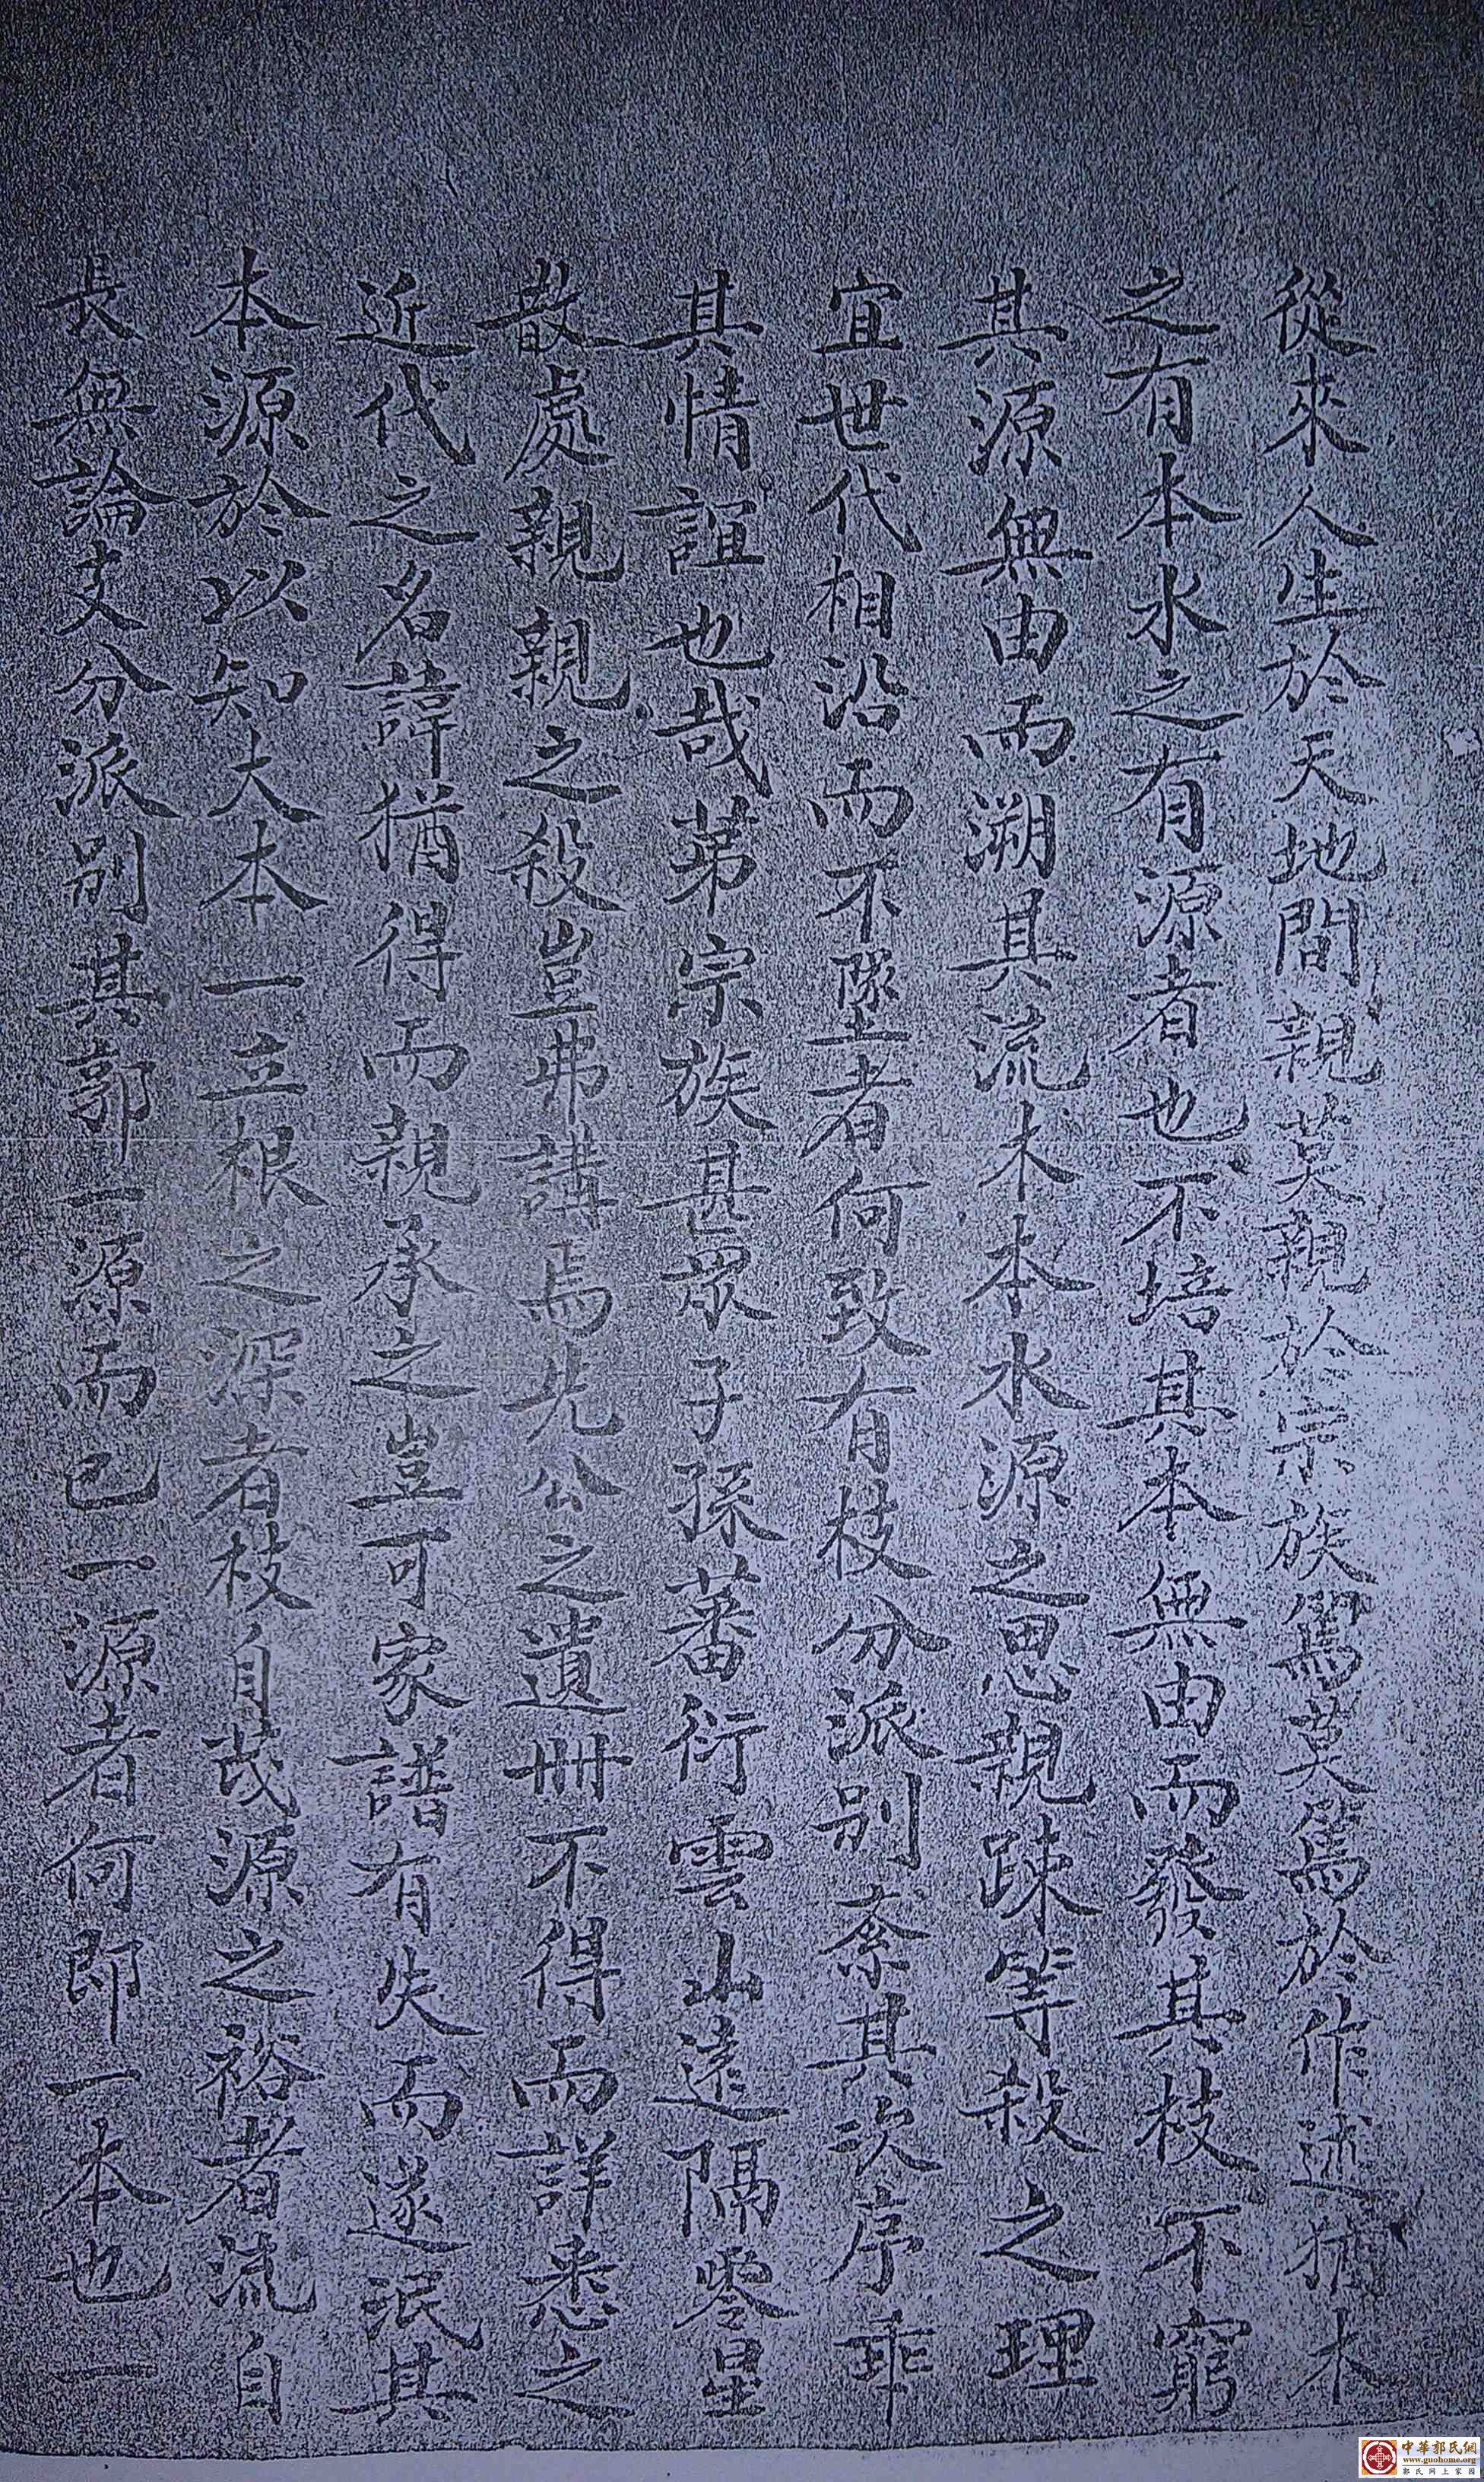 從來人生於天地間親莫親於宗族篤莫篤於作述猶木
之有本水之有源者也不培其本無由而發其枝不窮
其源無由而溯其流木本水源之思親疎等殺之理
宜世代相沿而不墜者何致有枝分派别紊其次序乖
其情誼也哉苐宗族甚眾子孫蕃衍雲山遠隔零星
散處親親之殺豈弗講焉先公之遺冊不得而詳悉之
近代之名諱猶得而親承之豈可家譜有失而遂泯其
本源於以知大本一立根之深者枝自茂源之裕者流自
長無論支分派別其郭一源而已一源者何即一本也一
中華郭氏網
www.guohome.org
郭氏网上家园